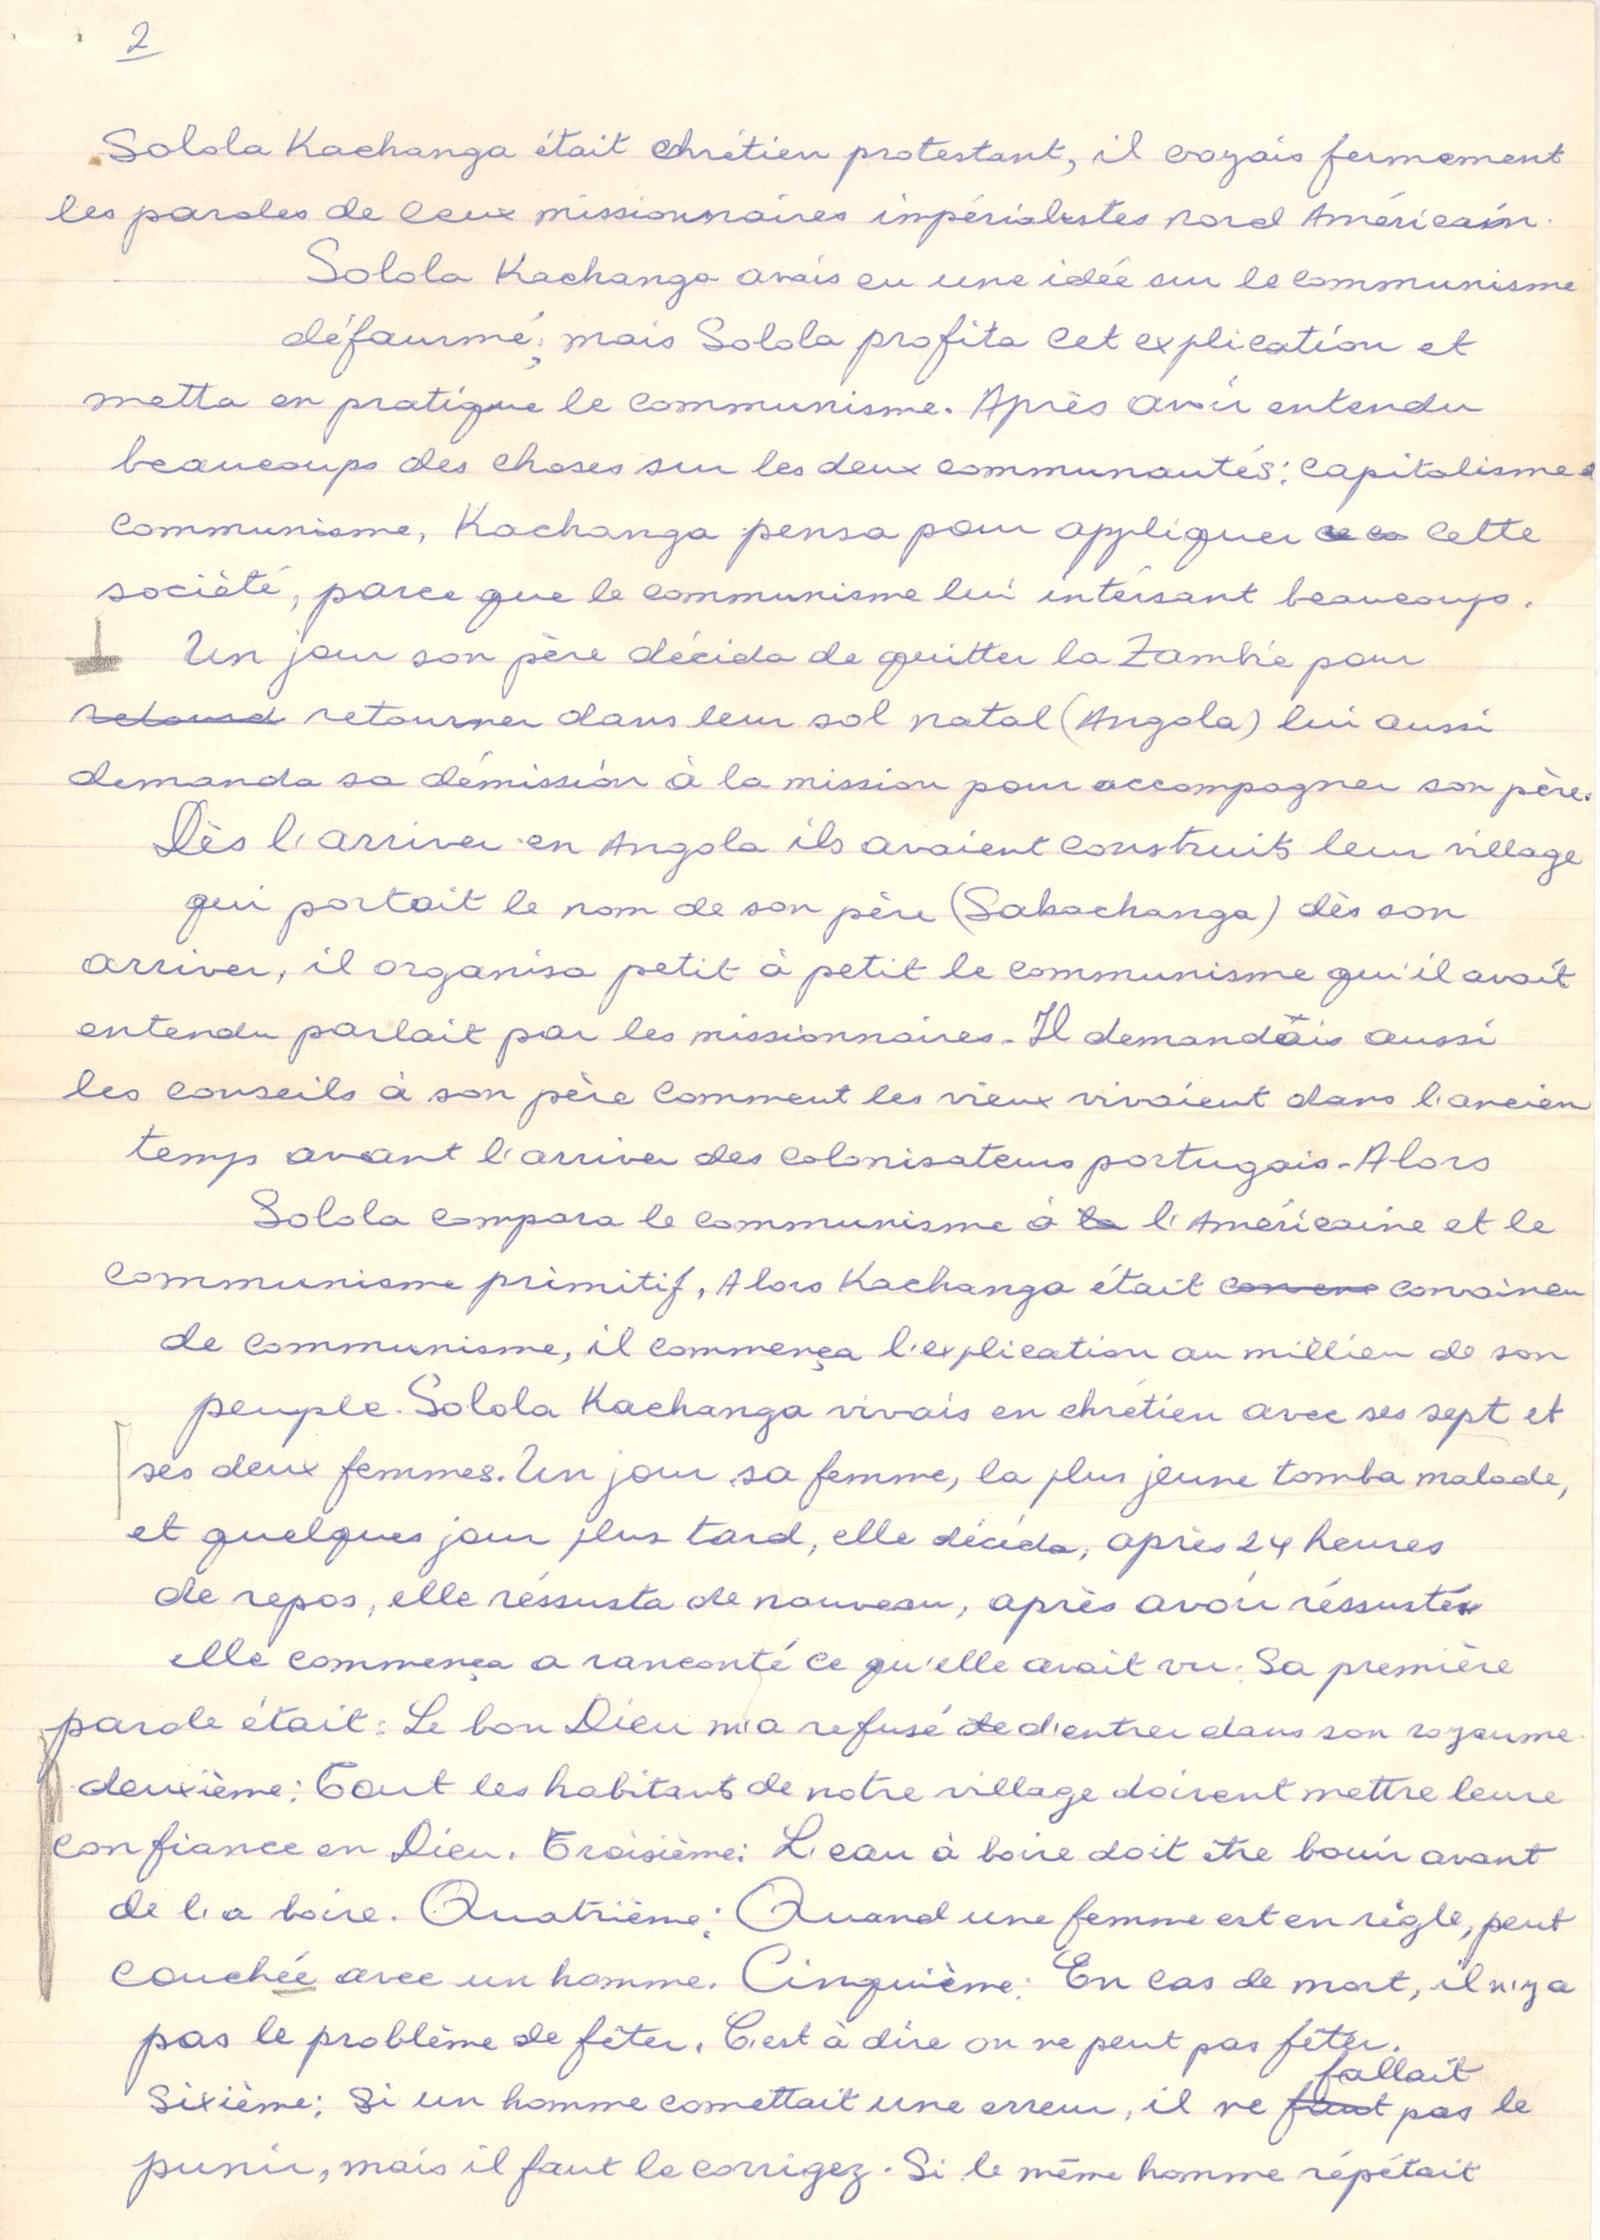 2
Solola Kachanga était chrétien protestant, il coyais fermement
les paroles de ceux missionnaires impérialistes nord Américain.
Solola Kachanga avais eu une idée sur le communisme
défaurmé; mais Solola profita cet explication et
metta en pratique le communisme. Après avoir entendu
beaucoups des choses sur les deux communautés: capitalisme
communisme, Kachanga pensa pour appliquer cette
société, parce que le communisme lui intérsant beaucoups.
Un jour son père décida de quitter la Zambie pour
retourner dans leur sol natal (Angola) lui aussi
demanda sa démission à la mission pour accompagner son père.
Dès l'arriver en Angola ils avaient construits leur village
qui portait le nom de son père (Sakachanga) dès son
arriver, il organisa petit à petit le communisme qu'il avait
entendu parlait par les missionnaires. Il demandais aussi
les conseils à son père comment les vieux vivaient dans l'ancien
temps avant l'arriver des colonisateurs portugais. Alors
Solola compara le communisme à la l'Américaine et le
communisme primitif, Alors Kachanga était convaincu
de communisme, il commença l'explication au millieu de son
peuple. Solola Kachanga vivais en chrétien avec ses sept et
ses deux femmes. Un jour sa femme, la plus jeune tomba malade,
et quelques jour plus tard, elle décéda, après 24 heures
de repos, elle réssusta de nouveau, après avoir réssustér
elle commença a ranconté ce qu'elle avait vu. Sa première
parole était: Le bon Dieu m'a refusé de d'entrer dans son royaume.
deuxième: Tout les habitants de notre village doivent mettre leure
confiance en Dieu. Troisième: L'eau à boire doit être bouir avant
de l'a boire. Quatrième: Quand une femme est en règle, peut
couchée avec un homme. Cinquième: En cas de mort, il n'y a
pas le problème de fêter. C'est à dire on ne peut pas fêter.
fallait
Sixième: Si un homme comettait une erreur, il ne faut pas le
punir, mais il faut le corrigez. Si le même homme répétait